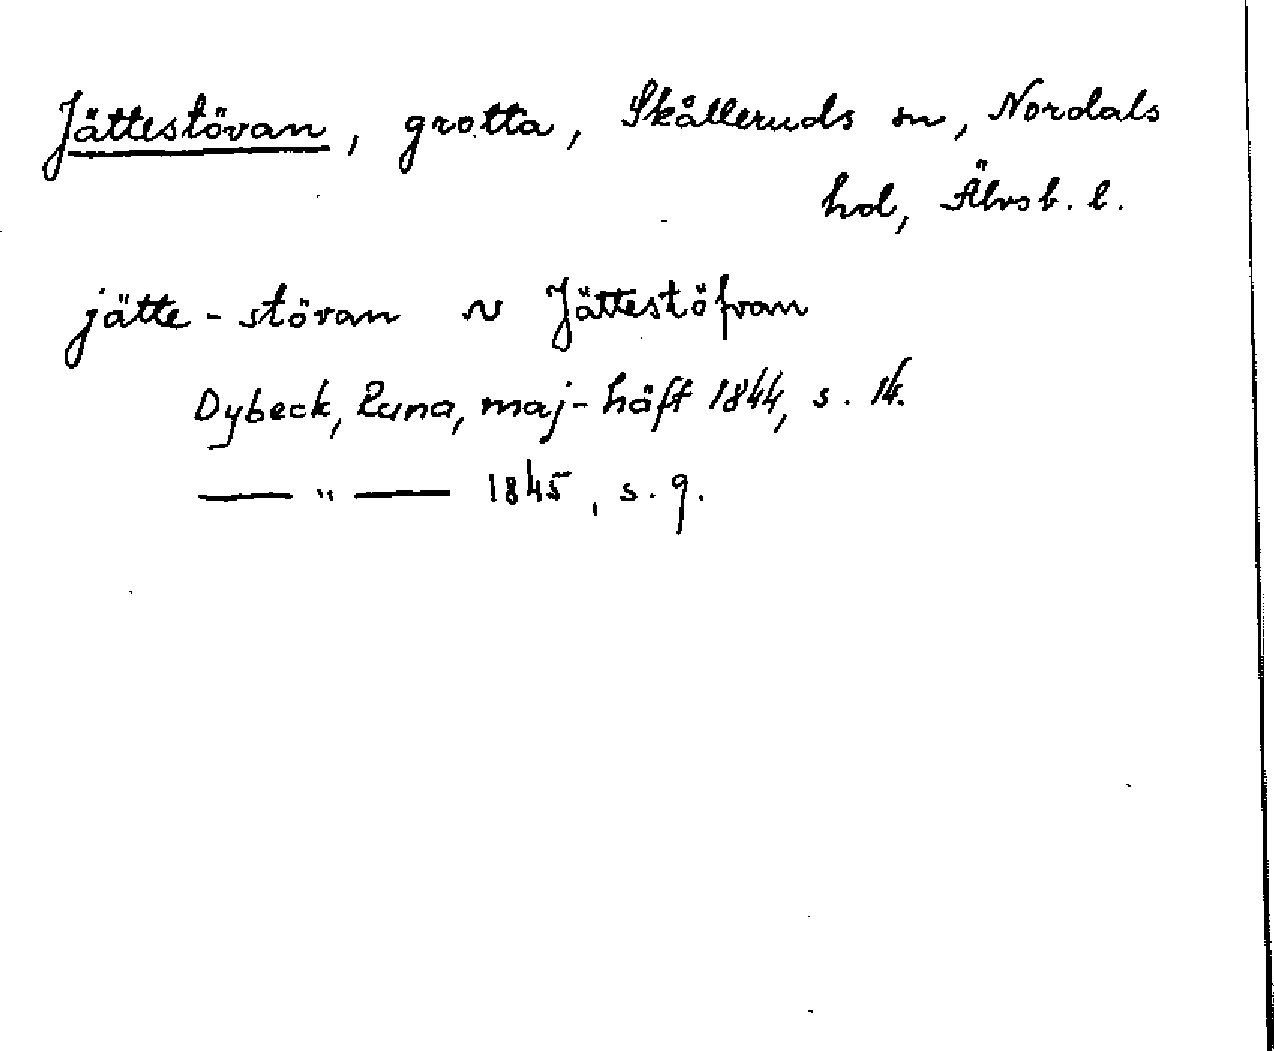 Jättestövan, grotta, Skålleruds sn, Nordals
hd, Älvsb. l.
jätte-stövan ~ Jättestöfvan
Dybeck, Runa, maj-häft 1844, s. 14.
— " — 1845, s. 9.